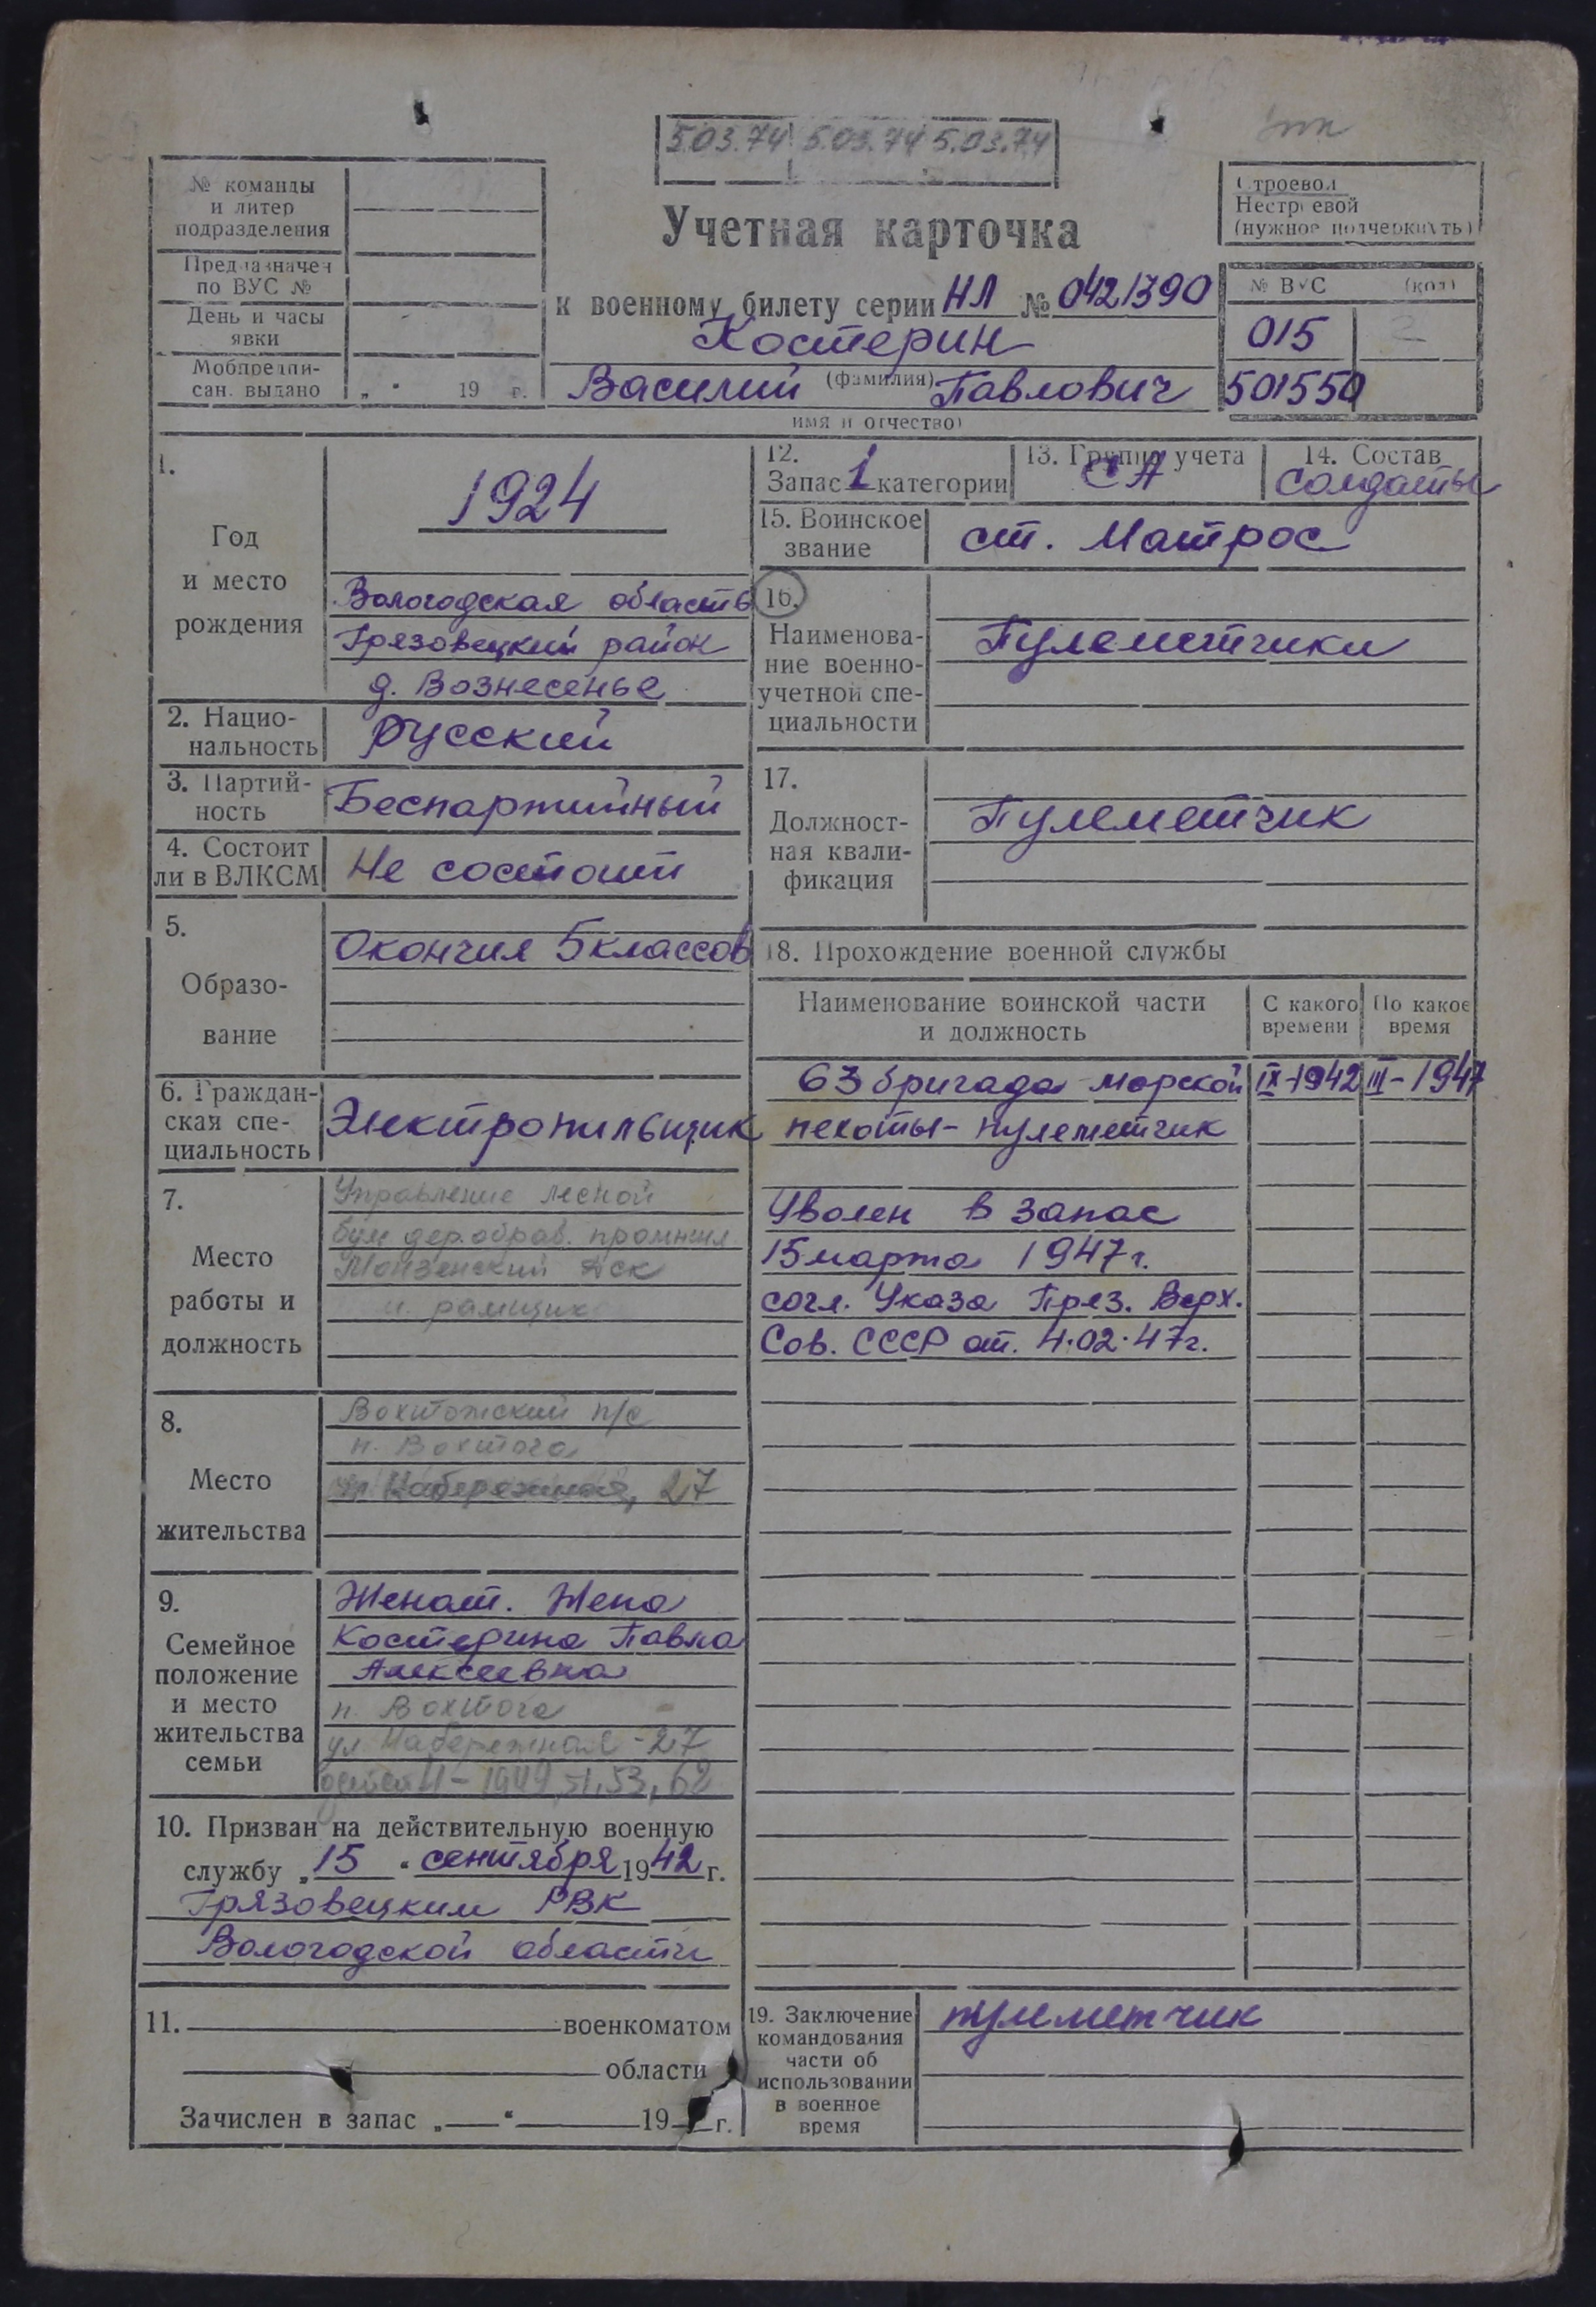 5.03.74 5.03.74 5.03.74
№ команды
и литер
подразделения
Предназначен
по ВУС №
День и часы
явки
Мобпредпи-
сан. выдано „ “ 19 г.
Учетная карточка
к военному билету серии НЛ № 0421390
Костерин
(фамилия)
Василий Павлович
имя и отчество)
Строевой
Нестроевой
(нужное подчеркнуть)
№ ВУС (код)
015 2
501550
1.
Год
и место
рождения
1924
Вологодская область
Грязовецкий район
д. Вознесенье
2. Нацио-
нальность
русский
3. Партий-
ность
Беспартийный
4. Состоит
ли в ВЛКСМ
Не состоит
5.
Образо-
вание
Окончил 5 классов
6. Граждан-
ская спе-
циальность
Электропильщик
7.
Место
работы и
должность
Управление лесной
бум дер.обраб.
Монзенский ДСК
рамщик
8.
Место
жительства
Вохтожский п/с
п. Вохтога
ул. Набережная, 27
9.
Семейное
положение
и место
жительства
семьи
Женат. Жена
Костерина Павла
Алексеевна
п. Вохтога
ул. Набережная - 27
детей 4 - 1949, 51, 53, 62
10. Призван на действительную военную
службу „15“ сентября 1942 г.
Грязовецким РВК
Вологодской области
11. военкоматом
области
Зачислен в запас „ “ 19 г.
12.
Запас 1 категории
13. Группа учета
СА
14. Состав
солдаты
15. Воинское
звание
ст. Матрос
16.
Наименова-
ние военно-
учетной спе-
циальности
Пулеметчики
17.
Должност-
ная квали-
фикация
Пулеметчик
18. Прохождение военной службы
Наименование воинской части
и должность
С какого
времени
По какое
время
63 бригада морской IX-1942 III-1947
пехоты - пулеметчик
Уволен в запас
15 марта 1947 г.
согл. Указа През. Верх.
Сов. СССР от. 4.02.47г.
19. Заключение
командования
части об
использовании
в военное
время
пулеметчик